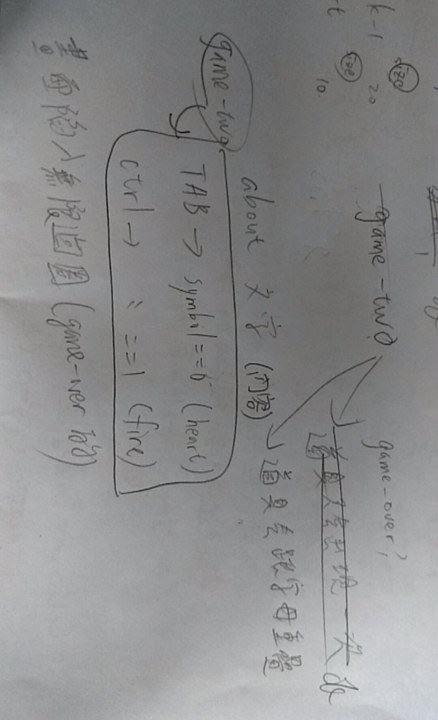 size
k-1 20
size
t 10
game-two
game-over?
道具只會出現一次 ok
道具會跟字母重疊
about 文字 (內容)
game-two
TAB → symbol==0 (heart)
ctrl → : ==1 (fire)
畫面陷入無限迴圈 (game-over 的)